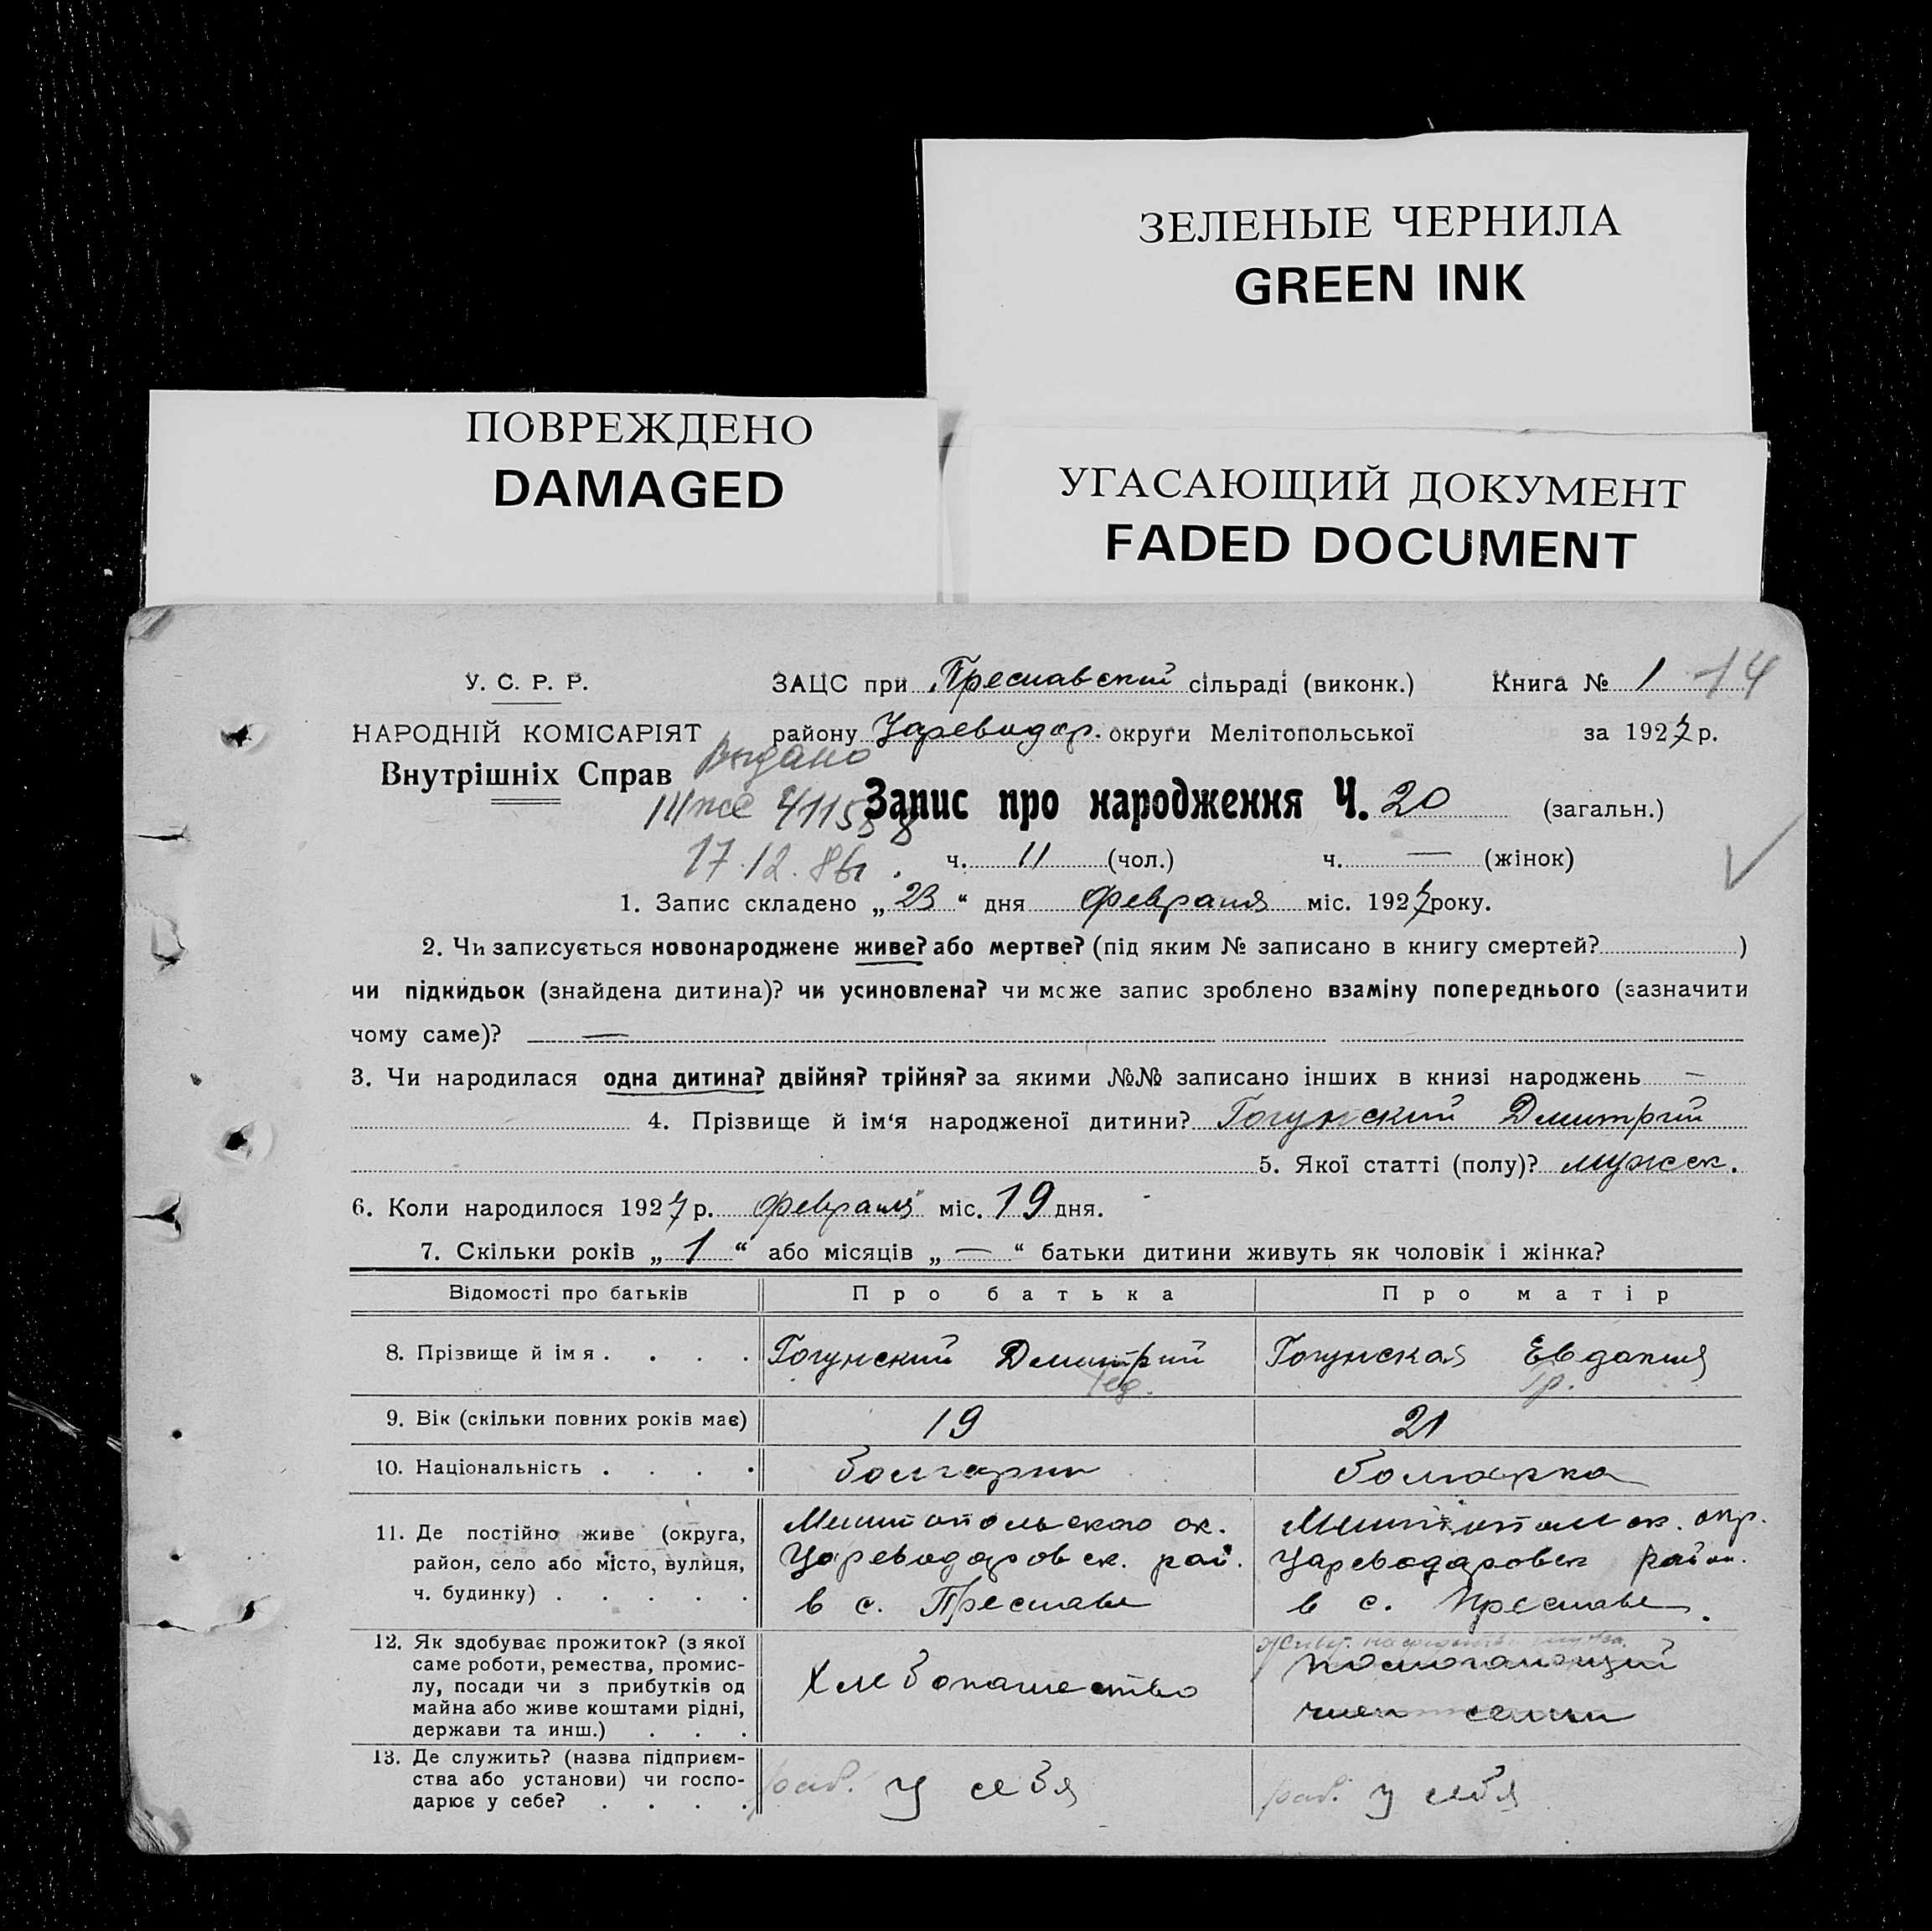 ЗЕЛЕНЫЕ ЧЕРНИЛА
GREEN INK
ПОВРЕЖДЕНО
DAMAGED
УГАСАЮЩИЙ ДОКУМЕНТ
FADED DOCUMENT
У. С. Р. Р. ЗАЦС при Преславский сільраді (виконк.) Книга № 1 14
НАРОДНІЙ КОМІСАРІЯТ району Цареводар. округи Мелітопольської за 1927 р.
Выдано
Внутрішніх Справ
Запис про народження Ч. 20 (загальн.)
17.12.86г. ч. 11 (чол.) ч. — (жінок)
1. Запис складено „ 23 “ дня февраля міс. 1927 року.
2. Чи записується новонароджене живе? або мертве? (під яким № записано в книгу смертей? )
чи підкидьок (знайдена дитина)? чи усиновлена? чи може запис зроблено взаміну попереднього (зазначити
чому саме)? —
3. Чи народилася одна дитина? двійня? трійня? за якими №№ записано інших в книзі народжень —
4. Прізвище й ім‘я народженої дитини? Гогунский Дмитрий
5. Якої статті (полу)? мужск.
6. Коли народилося 1927 р. февраля міс. 19 дня.
7. Скільки років „ 1 “ або місяців „ — “ батьки дитини живуть як чоловік і жінка?
Відомості про батьків Про батька Про матір
8. Прізвище й імя . . . . Гогунский Дмитрий Гогунская Евдокия
9. Вік (скільки повних років має) 19 21
10. Національність . . . . болгарин болгарка
11. Де постійно живе (округа, Мелитопольского ок. Мелитопольск. окр.
район, село або місто, вулиця, Цареводаровск. рай. Цареводаровск район.
ч. будинку) . . . . . в с. Преславе в с. Преславе.
12. Як здобуває прожиток? (з якої
саме роботи, ремества, промис-
лу, посади чи з прибутків од
майна або живе коштами рідні,
держави та инш.) . . .
Хлебопашество
помогающий
член семьи
13. Де служить? (назва підприєм-
ства або установи) чи госпо-
дарює у себе? . . . .
раб. у себя раб. у себя